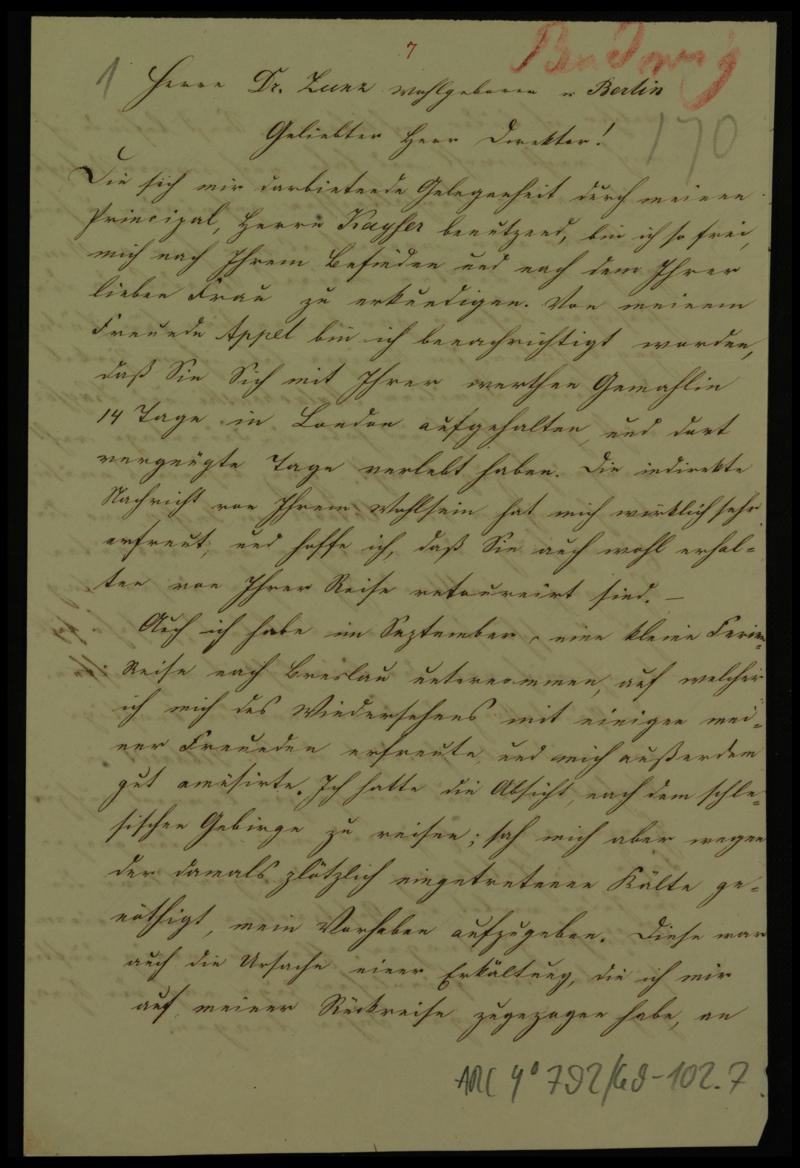 7
1
Herrn Dr. Zunz wohlgeboren in Berlin
170
Geliebter Herr Direktor!
Die sich mir darbietende Gelegenheit durch meinen
Principal, Herrn Kayser benutzend, bin ich so frei,
mich nach Ihrem Befinden und nach dem Ihrer
lieben Frau zu erkundigen. Von meinem
Freunde Appel bin ich benachrichtigt worden,
daß Sie Sich mit Ihrer werthen Gemahlin
14 Tage in London aufgehalten und dort
vergnügte Tage verlebt haben. Die indirekte
Nachricht von Ihrem Wohlsein hat mich wirklich sehr
erfreut, und hoffe ich, daß Sie auch wohl erhal-
ten von Ihrer Reise retournirt sind. —
Auch ich habe im September eine kleine Ferien-
Reise nach Breslau unternommen, auf welcher
ich mich des Wiedersehens mit einigen mei-
ner Freunden erfreute und mich außerdem
gut amüsirte. Ich hatte die Absicht, nach dem schle-
sischen Gebirge zu reisen; sah mich aber wegen
der damals plötzlich eingetretenen Kälte ge-
nöthigt, mein Vorhaben aufzugeben. Diese war
auch die Ursache einer Erkältung, die ich mir
auf meiner Rückreise zugezogen habe, an
ARC 4° 792/G9-102.7